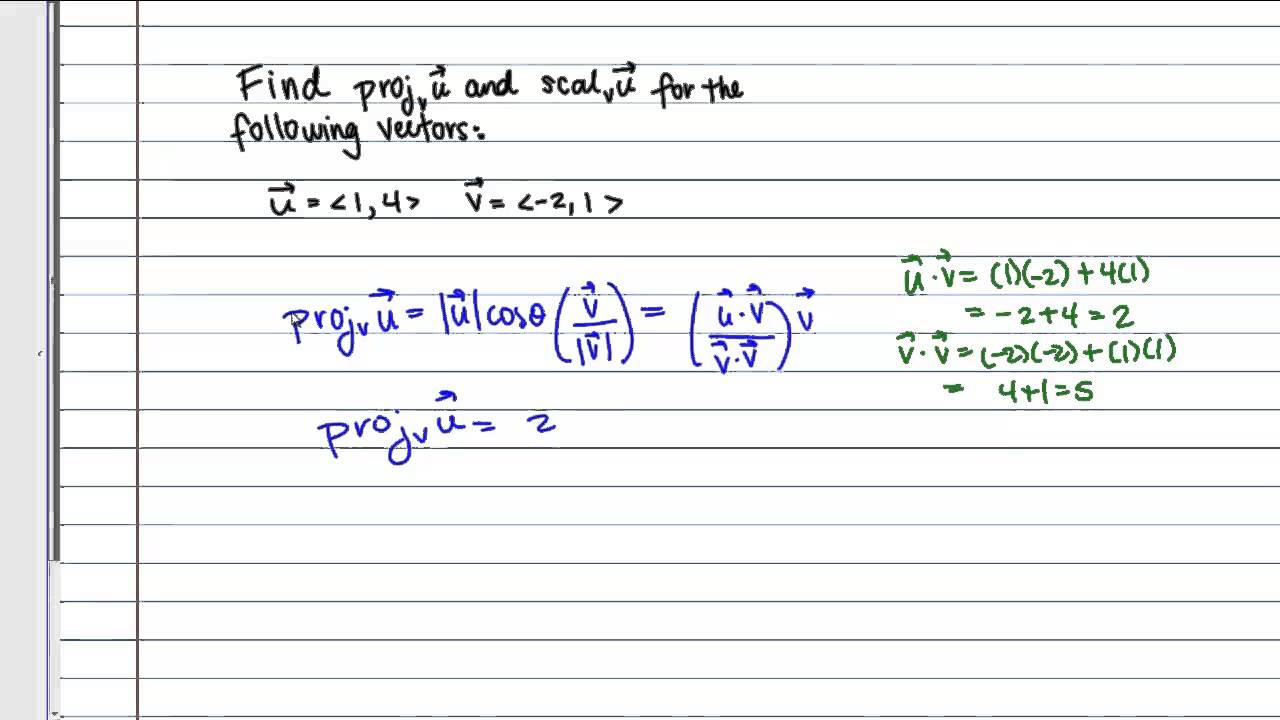 Find proj_v u⃗ and scal_v u⃗ for the
following vectors:
u⃗ = <1, 4> v⃗ = <-2, 1>
proj_v u⃗ = |u⃗| cosθ (v⃗/|v⃗|) = (u⃗·v⃗/v⃗·v⃗) v⃗
proj_v u⃗ = 2
u⃗·v⃗ = (1)(-2) + 4(1)
= -2 + 4 = 2
v⃗·v⃗ = (-2)(-2) + (1)(1)
= 4+1 = 5